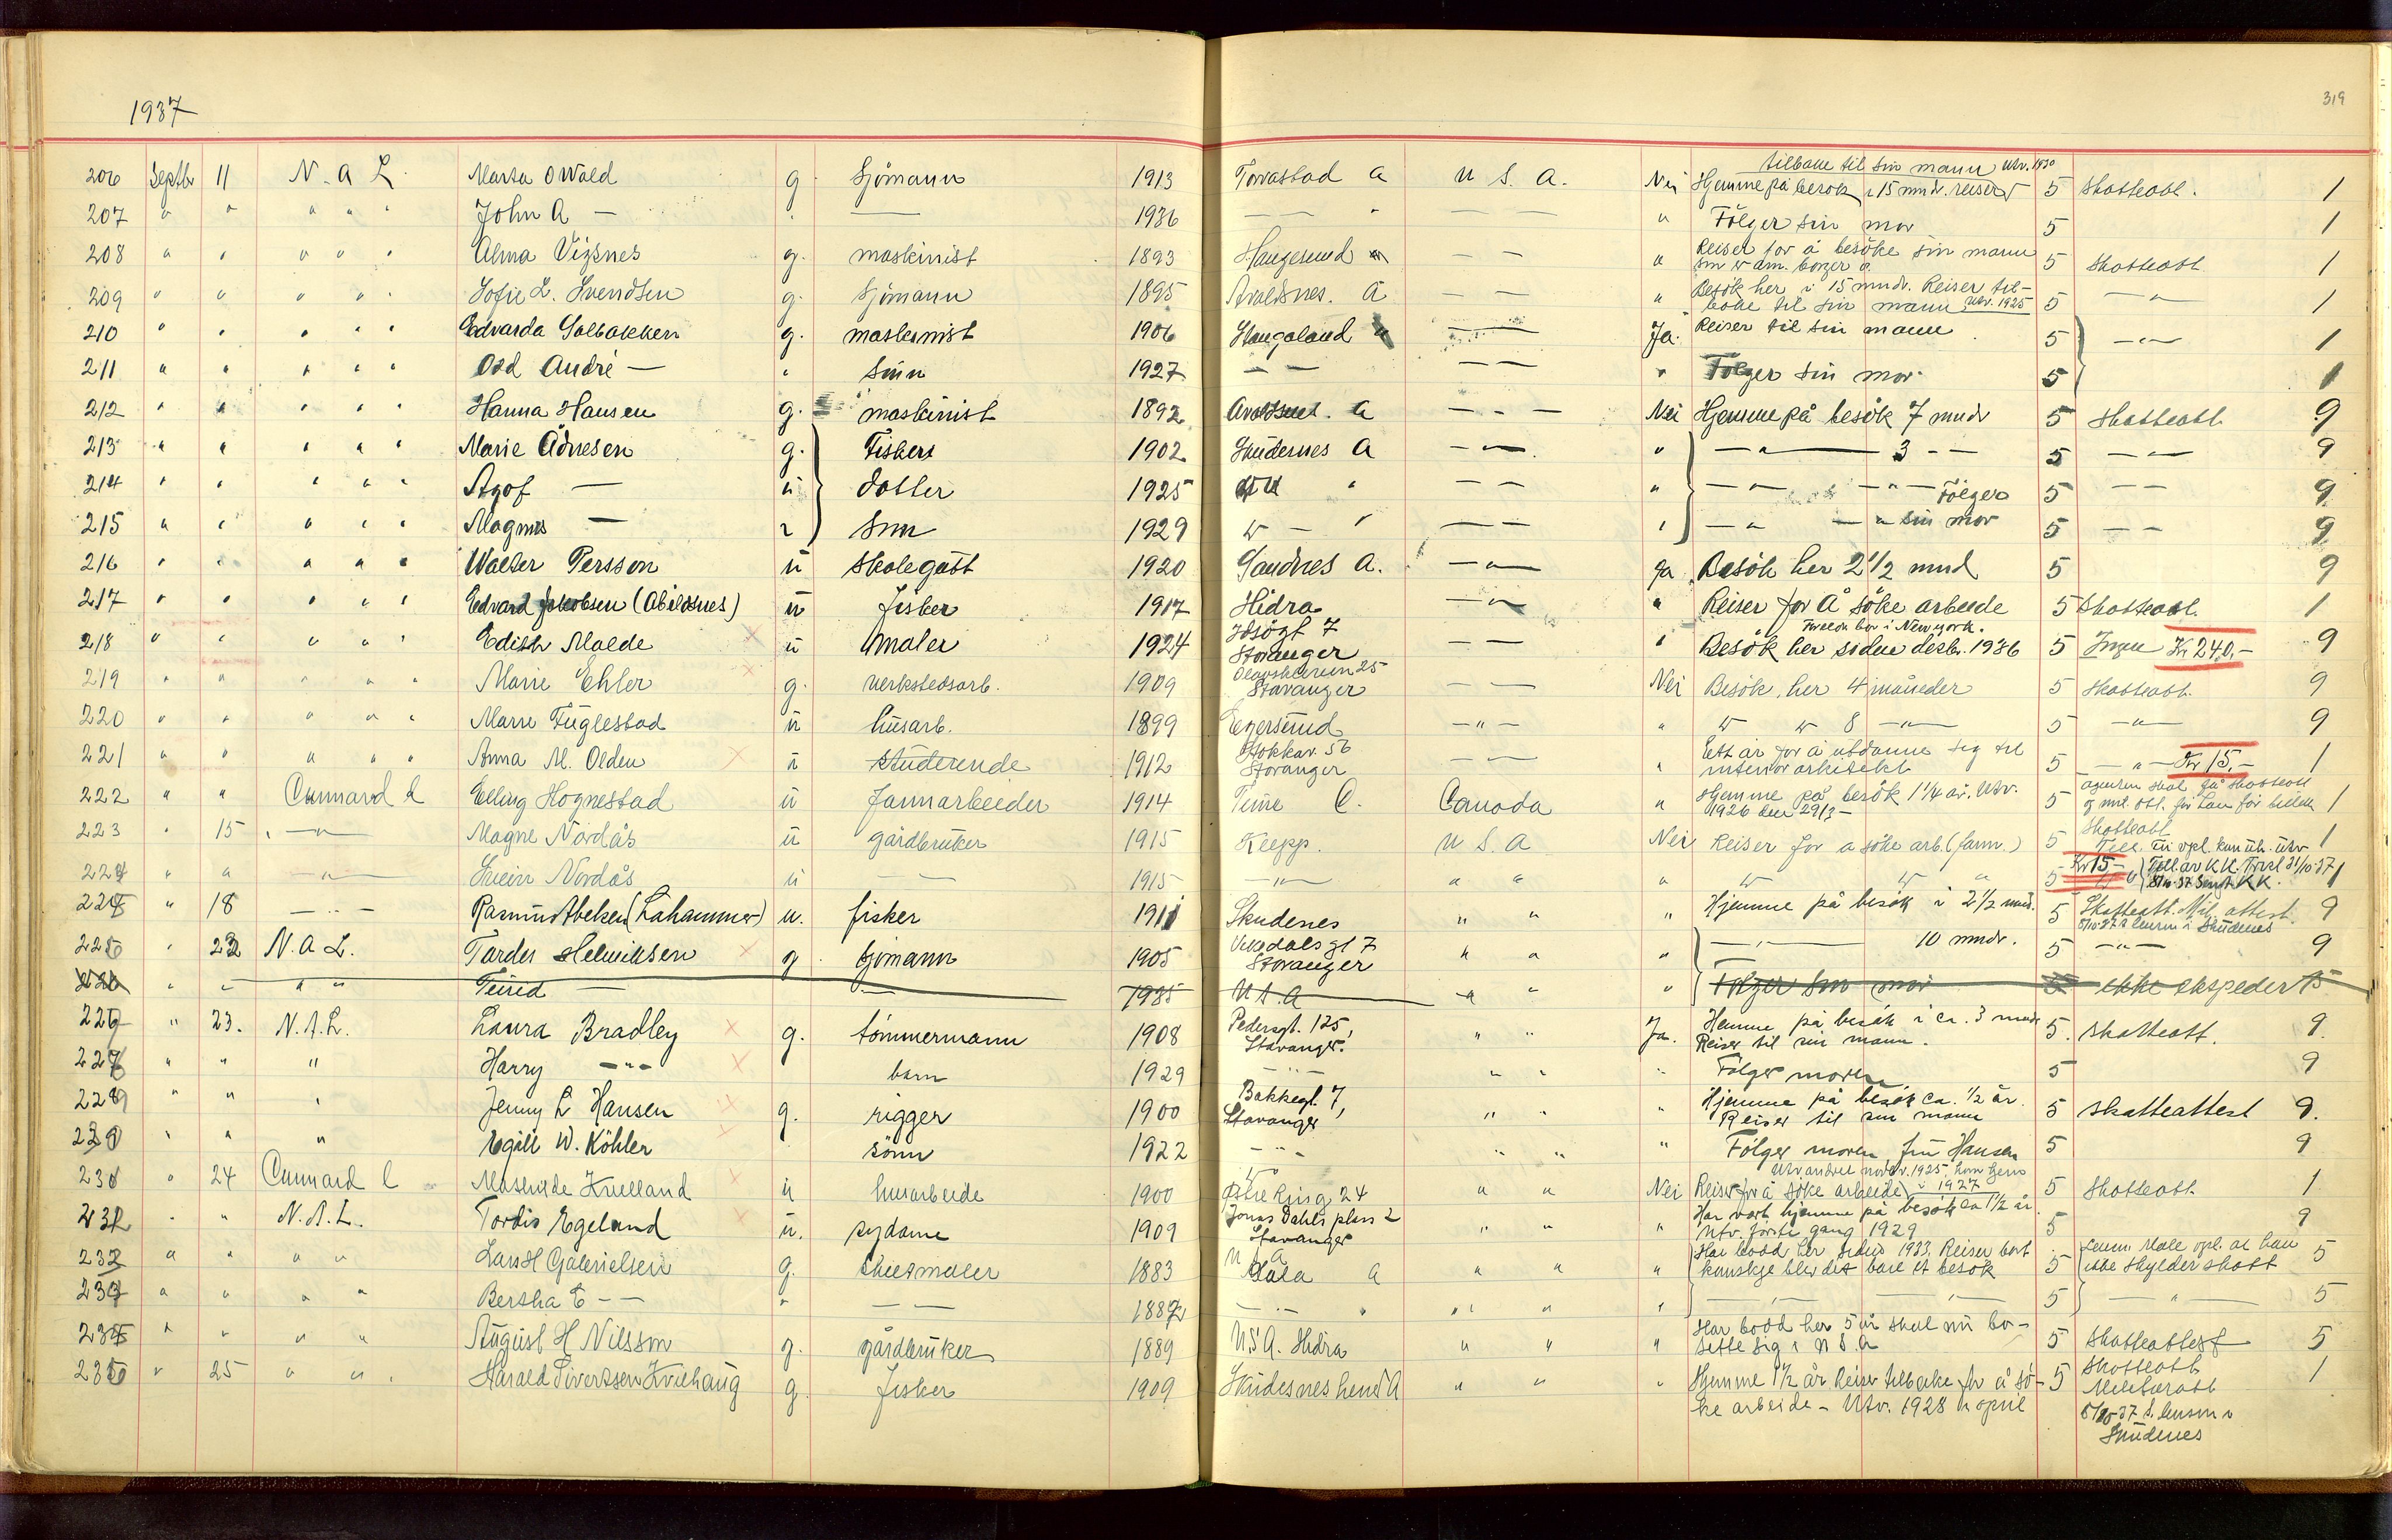 1937
319
206 Septbr 11 N. A. L. Marta O Wold g. Sjömann 1913 Torvastad A U. S. A. Nei Hjemme på besök i 15 mndr. reiser tilbake til sin mann Utv. 1930 5 Skatteatt. 1
207 " " " " " John A — " — 1936 — — " — — " Fölger sin mor 5 1
208 " " " " " Alma Visnes g. maskinist 1893 Haugesund — — " Reiser for å besöke sin mann som er am. borger 5 Skatteatt. 1
209 " " " " " Sofie L. Svendsen g. Sjömann 1895 Avaldsnes. A — — " Besök her i 15 mndr. Reiser til-
bake til sin mann Utv. 1925 5 — " — 1
210 " " " " " Edvarda Solbakken g. maskinist 1906 Skaugaland — — Ja. Reiser til sin mann 5 — " — 1
211 " " " " " Odd André — " Sönn 1927 — — — — " Fölger sin mor 5 1
212 " " " " " Hanna Hansen g. maskinist 1892 Avaldsnes. A — — — Nei Hjemme på besök 7 mndr 5 Skatteatt. 9
213 " " " " " Marie Ådnesen g. Fisker 1902 Skudenes A — " — " — " — 3 — — 5 — " — 9
214 " " " " " — ü dotter 1925 " — — " — " — — " — Fölger 5 — — 9
215 " " " " " Magnus — " Sönn 1929 — " — — " — " — " sin mor 5 — — 9
216 " " " " " Walter Persson ü Skolegutt 1920 Sandnes A. — " — Ja Besök her 2 1/2 mnd 5 9
217 " " " " " Edvard Jakobsen (Abildsnes) ü fisker 1917 Hidra — " — " Reiser for å söke arbeide 5 Skatteatt. 1
218 " " " " " Edith Malde ü maler 1924 Stavanger — — " Foreldr. bor i New York.
Besök her siden desbr. 1936 5 Ingen Kr 240,— 9
219 " " " " " Marie Ehler g. verkstedsarb. 1909 Stavanger — — Nei Besök her 4 måneder 5 Skatteatt. 9
220 " " " " " Marie Fuglestad ü husarb. 1899 Egersund — " — " " " 8 — " — 5 — " — 9
221 " " " " " Anna M. Olden ü studerende 1912 Stokkav. 56
Stavanger — — " Ett år for å utdanne seg til
interiorarkitekt 5 — " — Kr 15,— 1
222 " " Cunnard L Elling Hognestad ü Farmarbeider 1914 Time C. Canada " Hjemme på besök 1 1/4 år. Utv.
1926 den 29/3 — 5 agenten skal få skatteatt
og mil. att. för han får billett 1
223 " 15 " — " — Magne Nordås ü gårdbruker 1915 Klepp. U S A Nei Reiser for å söke arb. (farm.) 5 Skatteatt. 1
224 " " — " — Svein Nordås ü — — 1915 — " — " " " " " " 5 Kr 15 — 1
225 " 18 — " — Rasmus (Lahammer) u. fisker 1911 Skudenes " " " Hjemme på besök i 2 1/2 mnd. 5 Skatteatt. Mil. attest. 9
226 " 22 N. A L. Helmiksen g. Sjömann 1905 Stavanger " " " — " — 10 mndr. 5 — " — 9
226 " " " " Turid — — 1935 U. S. A — " " " Fölger sin mor 5 ikke ekspedert 5
227 " 23. N. A. L. Laura Bradley g. tömmermann 1908 Pedersgt. 125,
Stavanger. " " Ja. Hjemme på besök i ca. 3 mndr
Reiser til sin mann. 5. Skatteatt. 9.
228 " " " Harry — " — barn 1929 — " — " " " Fölger moren 5 9
229 " " " Jenny L Hansen g. rigger 1900 Bakkegt. 7,
Stavanger " " " Hjemme på besök ca. 1/2 år.
Reiser til sin mann 5 Skatteattest 9.
230 " " " Egill W. Köhler sönn 1922 — " — " " " Fölger moren, fru Hansen 5 9
231 " 24 Cunnard L Mathilde Kielland ü husarbeide 1900 Östre Ring 24 " " Nei Utvandret 1925, kom hjem
Reiser for å söke arbeide i 1927 5 Skatteatt. 1
232 " " N. A. L. Tordis Egeland ü. sydame 1909 Jonas Dahls plass 2
Stavanger " " " Har vært hjemme på besök ca 1 1/2 år.
Utv. förste gang 1929 5 9
233 " " " " Lars H Gabrielsen g. 1883 U S A
A " " " Har bodd her siden 1933. Reiser bort
kanskje blev det bare et besök 5 opl. at han
ikke skylder skatt 5
234 " " " " Bertha E — — " — — 1887 — " — " " " " — " — 5 — " — 5
235 " " " " August H Nilsson g. gårdbruker 1889 U.S.A. Hidra " " " Har bodd her 5 år skal nu bo-
sette seg i U S A 5 Skatteattest 5
236 " 25 " " " Harald Sivertsen Kvilhaug g. fisker 1909 Skudesneshavn A " " " Hjemme 1 1/2 år Reiser tilbake for å sö-
ke arbeide — Utv. 1928 i april 5 Skatteatt.
Militæratt.
Skudenes 1